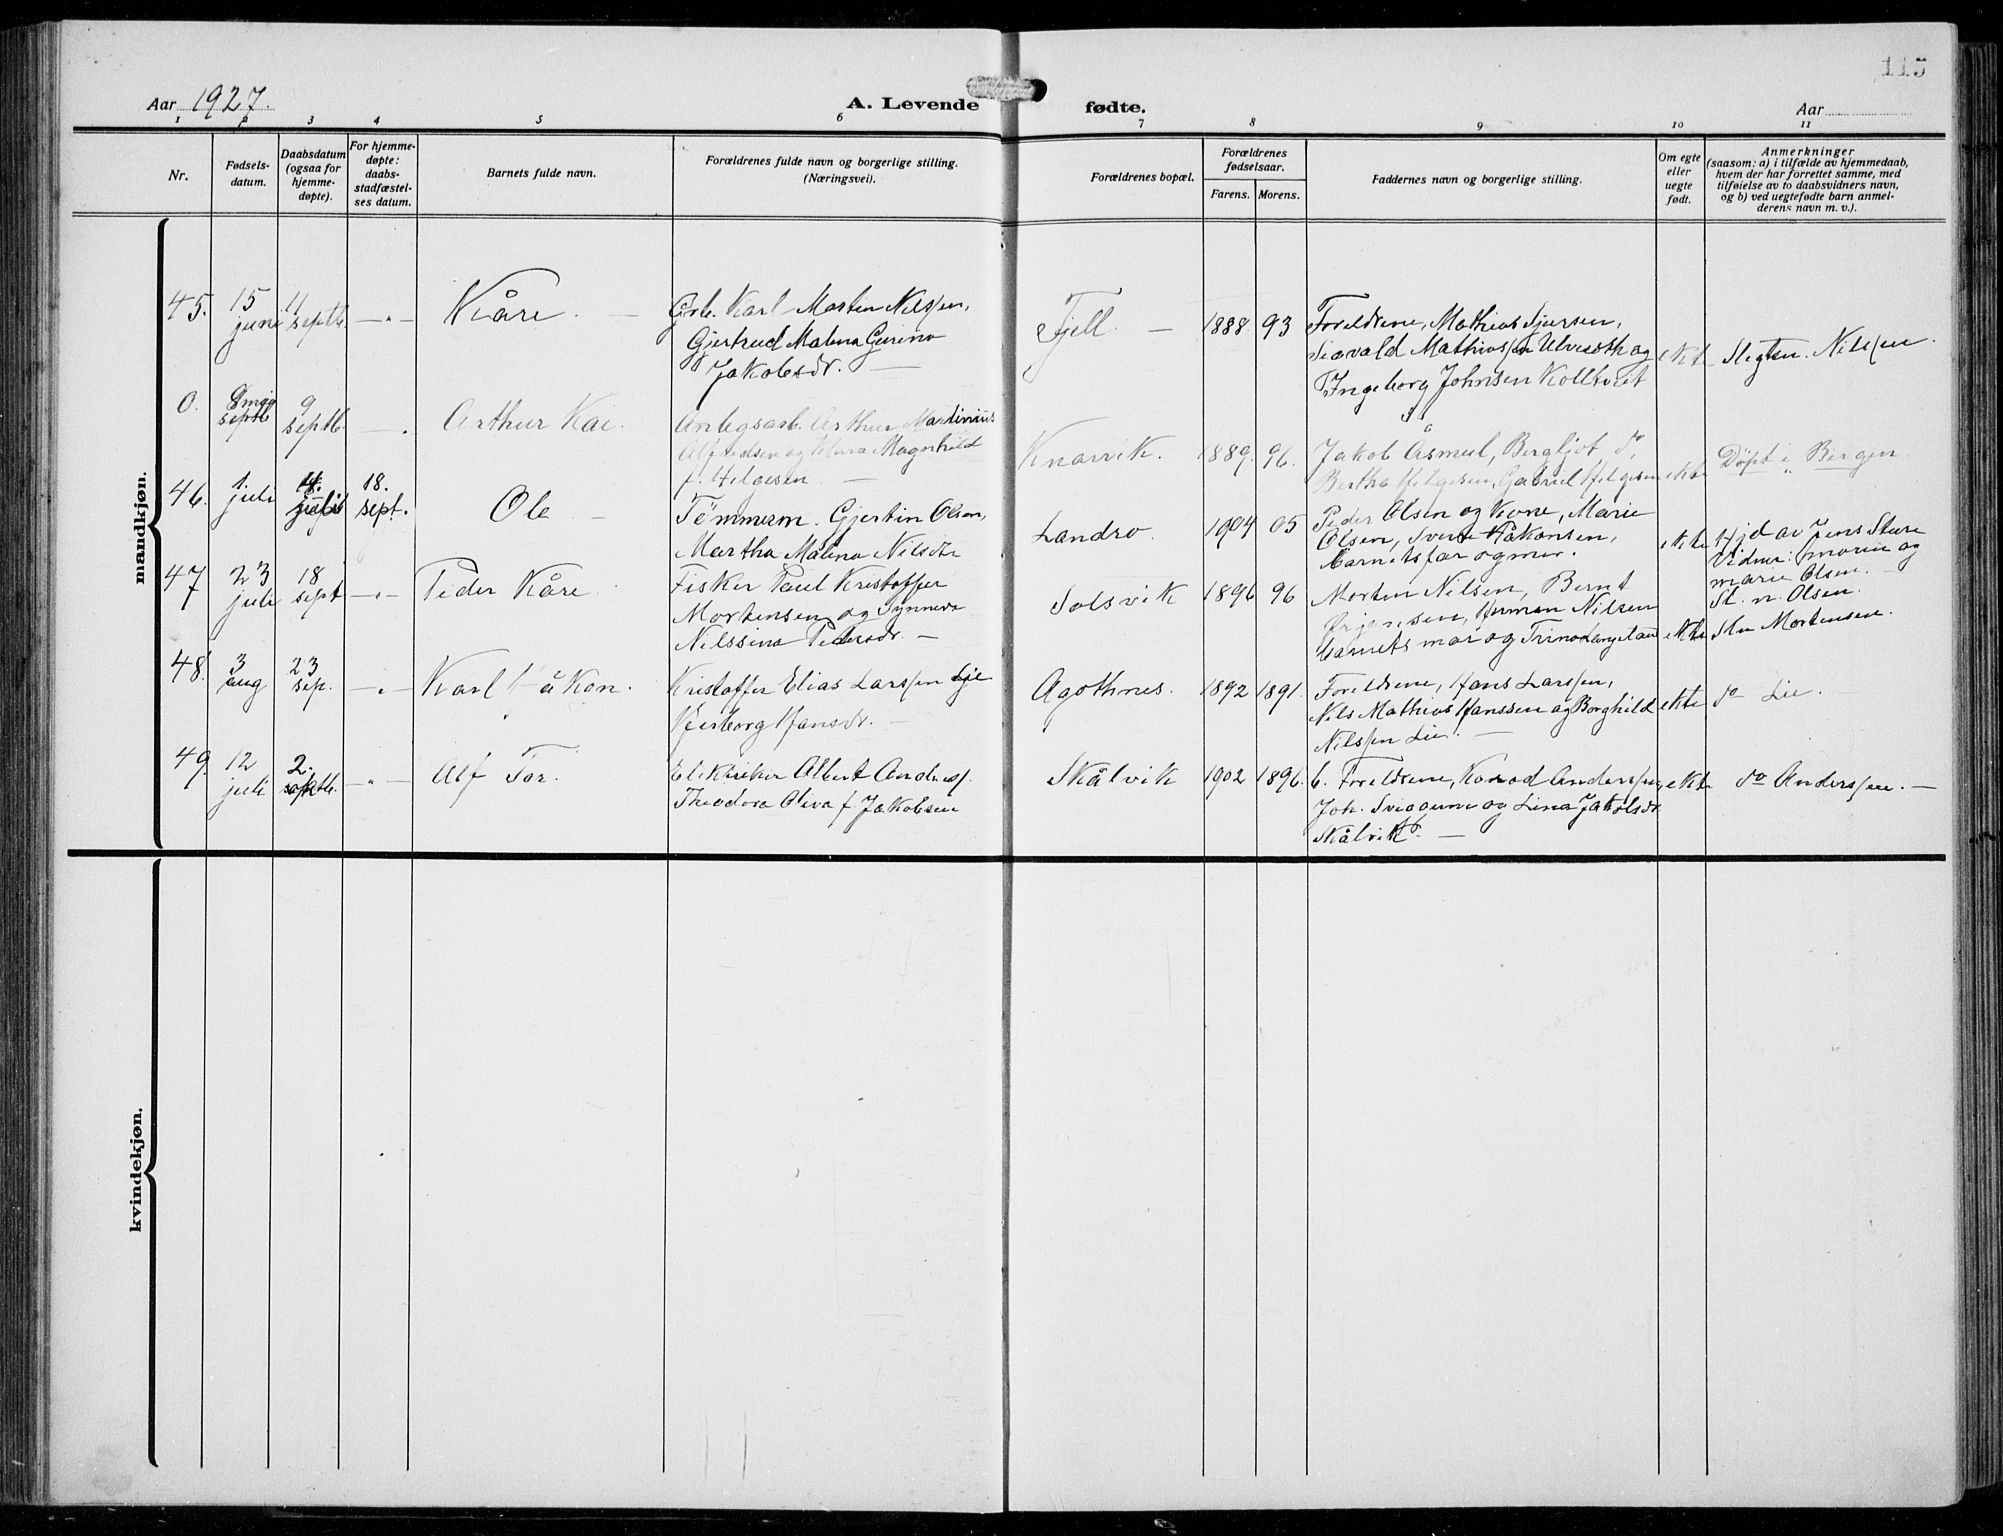 115
Aar 1927.
A. Levende fødte.
Aar
1 2 3 4 5 6 7 8 9 10 11
Nr.
Fødsels-
datum.
Daabsdatum
(ogsaa for
hjemme-
døpte).
For hjemme-
døpte:
daabs-
stadfæstel-
ses datum.
Barnets fulde navn.
Forældrenes fulde navn og borgerlige stilling.
(Næringsvei).
Forældrenes bopæl.
Forældrenes
fødselsaar.
Farens. Morens.
Faddernes navn og borgerlige stilling.
Om egte
eller
uegte
født.
Anmerkninger
(saasom: a) i tilfælde av hjemmedaab,
hvem der har forrettet samme, med
tilføielse av to daabsvidners navn,
og b) ved uegtefødte barn anmel-
derens navn m. v.).
mandkjøn.
45. 15 juni 11 septb. — " — Kåre. — Fjell — 1888 93 ekt
Grb. Karl Martin Nilssen,
Gjertrud Malena Gurina
Jakobsdr. —
Foreldrene, Mathias Sjursen,
Sigvald Mathiassen Ulveseth og
Ingeborg Johnsen Kolltveit
Slegtsn. Nilssen.
0. septb 9 septb. Arthur Kai. Knarvik. 1889. 96. ekte
Anlegsarb. Arthur Martinius
Alfredsen og Klara Magnhild
f. Helgesen —
Jakob Asmul, Bergljot do,
Bertha Helgesen, Gabriel Helgesen
Døpt i Bergen.
46. 1. juli 18. sept. Ole — Landro. 1904 05 ekte
Tømmerm. Gjertin Olsen,
Martha Malena Nilsdtr
Peder Olsen og Kone, Marie
Olsen, Sverre Håkonsen,
barnets far og mor.
Hjd av Jens Sture
Vidner: Marie og
Marie Olsen. —
Sl. n. Olsen.
47 23 juli 18 sept — " — Peder Kåre. Solsvik 1896 96 ekte
Fisker Paul Kristoffer
Mortensen og Synneva
Nilssina Pedersdr. —
Morten Nilsen, Bernt
Ørjansen, Herman Nilsen
barnets mor og Trina
Sln Mortensen
48. 3 aug 23 sep. — " — Karl Håkon. Agothnes. 1892 1891. ekte
Kristoffer Elias Larssen Lie
Herborg Hansdr. —
Foreldrene, Hans Larssen,
Nils Mathias Hanssen og Borghild
Nilssen Lie. —
do Lie.
49. 12 juli 2. septb. — " — Alf Tor. Skålvik 1902 1896. ekte
Elektriker Albert Anderss.
Theodora Oliva f Jakobsen
6. Foreldrene, Konrad Anderssen,
Joh. Sveggum og Lina Jakobsdr
Skålvik. —
do Anderssen. —
kvindekjøn.